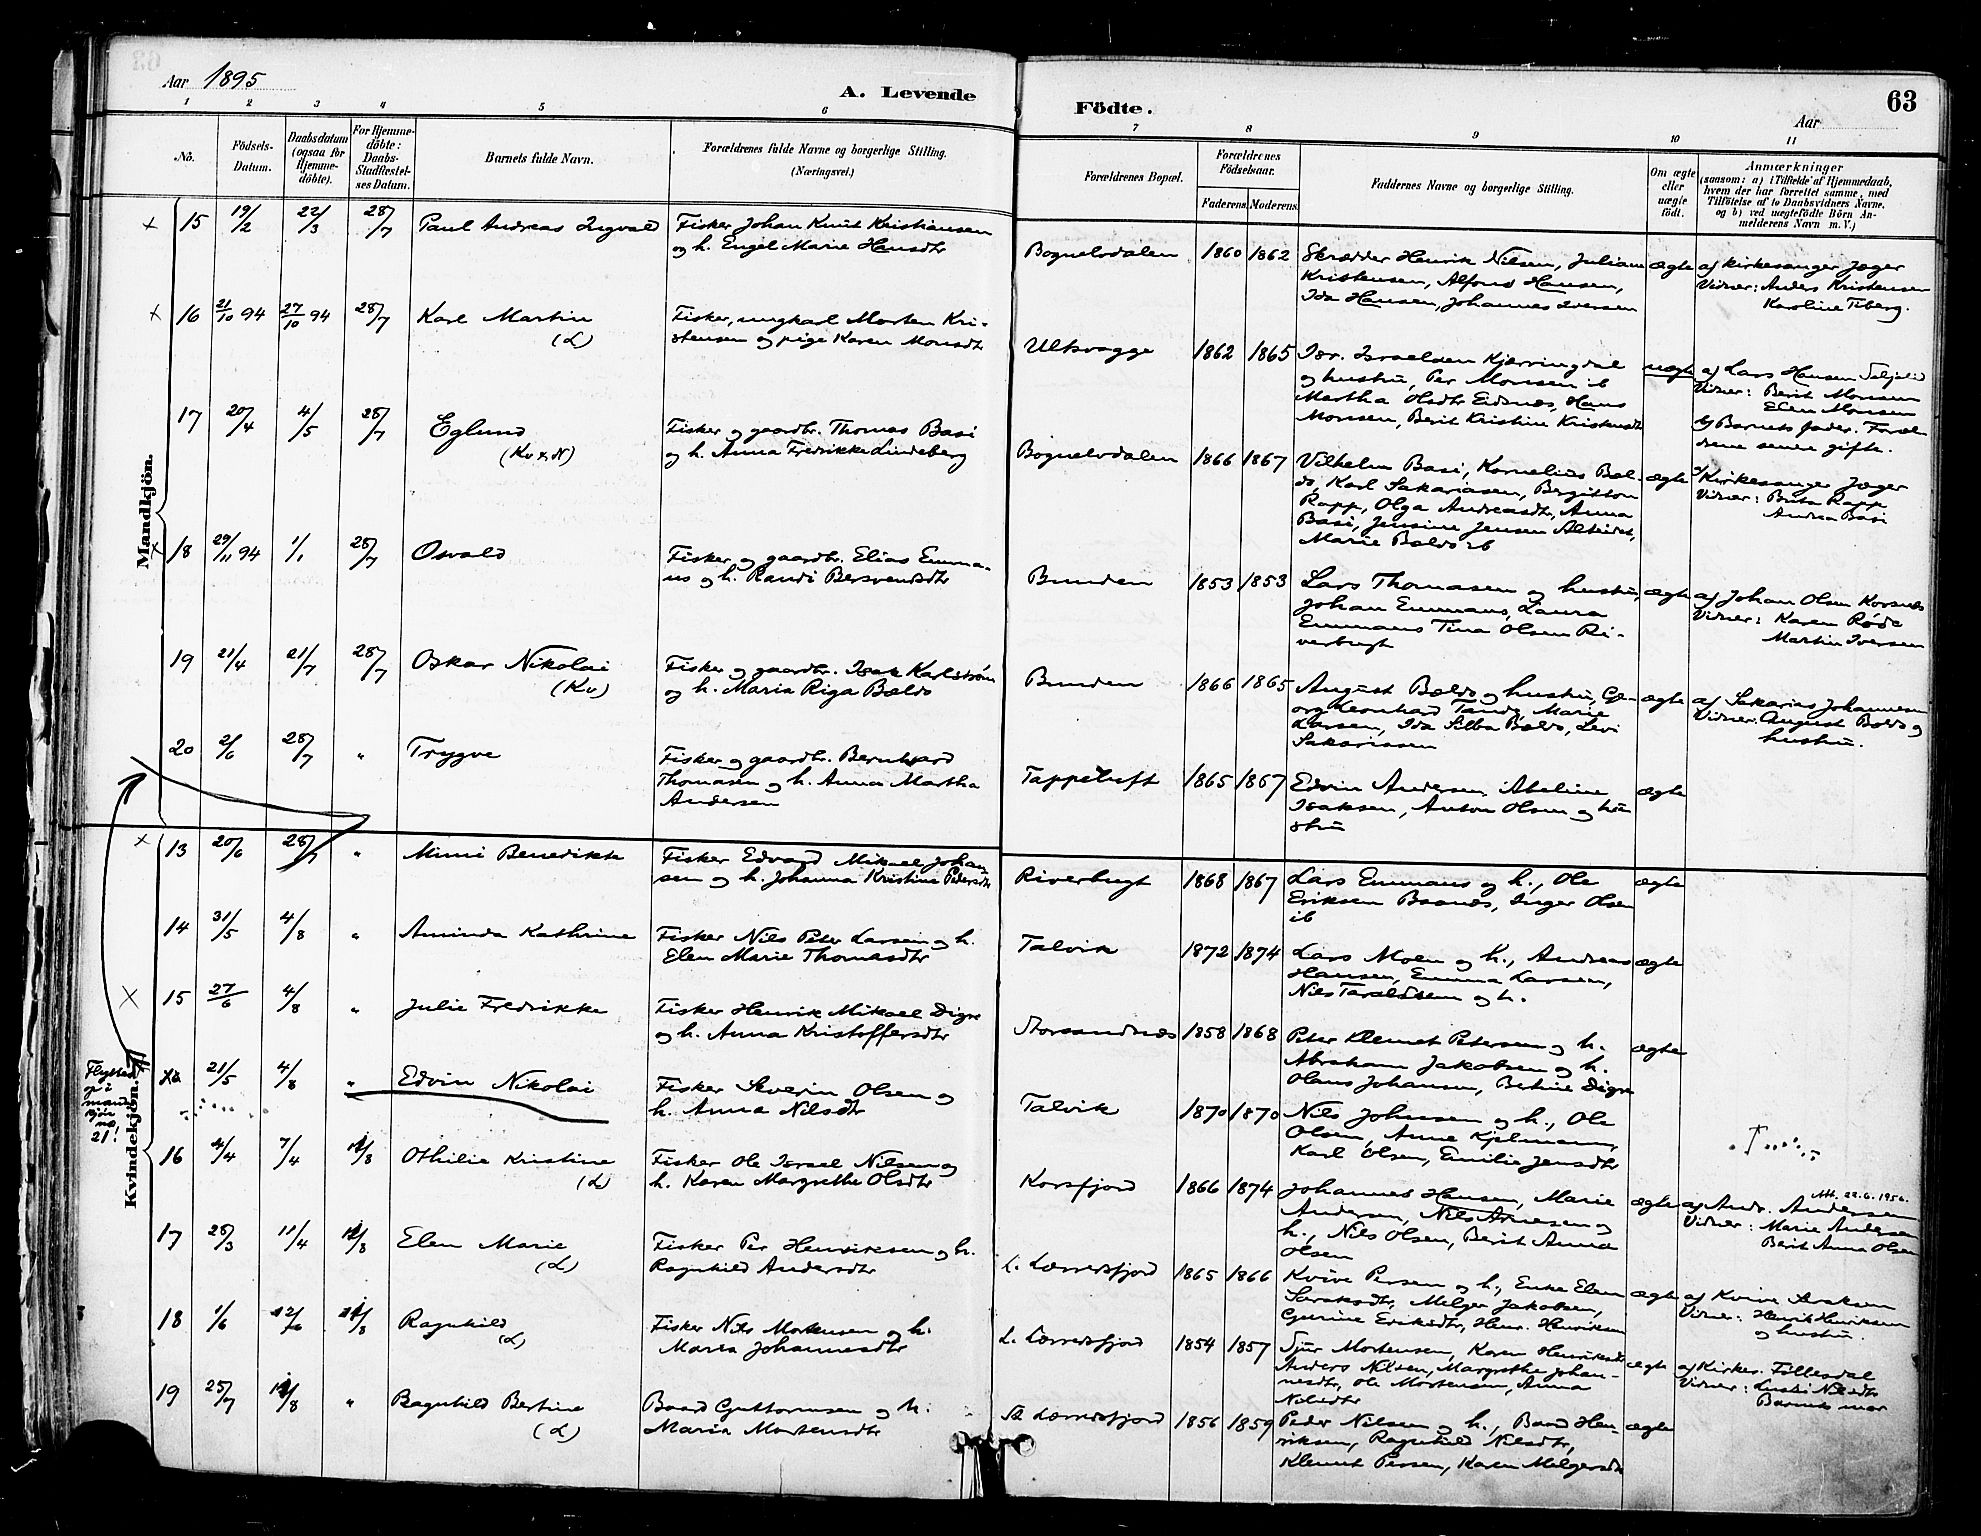 63
Aar 1895
A. Levende
Födte.
Aar
1 2 3 4 5 6 7 8 9 10 11
No.
Födsels-
Datum.
Daabsdatum
(ogsaa for
Hjemme-
döbte).
For Hjemme-
döbte:
Daabs-
Stadfæstel-
ses Datum.
Barnets fulde Navn.
Forældrenes fulde Navne og borgerlige Stilling.
(Næringsvei.)
Forældrenes Bopæl.
Forældrenes
Födselsaar.
Faderens. Moderens.
Faddernes Navne og borgerlige Stilling.
Om ægte
eller
uægte
födt.
Anmærkninger
(saasom: a) i Tilfælde af Hjemmedaab,
hvem der har forrettet samme, med
Tilföielse af to Daabsvidners Navne,
og b) ved uægtefödte Börn An-
melderens Navn m. V.)
Mandkjön.
15 19/2 22/3 28/7 Paul Andreas Ingvald
Fisker Johan Knut Kristiansen
og h. Engel Marie Hansdtr
Bognelvdalen 1860 1862
Skrædder Henrik Nilsen, Juliane
Kristensen, Alfons Hansen,
Ida Hansen, Johannes Iversen
ægte
af Kirkesanger Jæger
Vidner: Anders Kristensen
Karoline Tiberg.
16 21/10 94 27/10 94 28/7 Karl Martin
(L)
Fisker, ungkarl Morten Kri-
stensen og pige Karen Monsdtr
Ulsvagge 1862 1865
Isr. Israelsen Kjerringdal
og hustru, Per Monsen ib
Martha Olsdtr Eidsnes, Hans
Monsen, Berit Kristine Kristensdtr
uægte
af Lars Hansen
Vidner: Berit Monsen
Elen Monsen
b) Barnets fader. Foræl-
drene senere gifte.
17 20/4 4/5 28/7 Eglund
(Kv + N)
Fisker og gaardbr. Thomas Basi
og h. Anna Fredrikke Lindeberg
Bognelvdalen 1866 1867
Vilhelm Basi, Kornelius Bæl-
do, Karl Sakariasen, Birgitton
Rapp, Olga Andreasdtr, Anna
Basi, Jensine Jensen Alteidet,
Marie Bældo ib
ægte
a) Kirkesanger Jæger
Vidner: Brita Rapp
Andrea Basi
18 29/11 94 1/1 28/7 Osvald
Fisker og gaardbr. Elias Emma-
us og h. Randi Bersvendsdtr
Bunden 1853 1853
Lars Thomasen og hustru,
Johan Emmaus, Laura
Emmaus Tina Olsen Ri-
verbugt
ægte
af Johan Olsen Korsnes
Vidner: Karen Røde
Martin Iversen
19 21/4 21/7 28/7 Oskar Nikolai
(Kv)
Fisker og gaardbr. Isak Karlstrøm
og h. Maria Riga Bældo
Bunden 1866 1865
August Bældo og hustru, Ge-
org Leonhard Tandy, Marie
Larsen, Ida Silba Bældo, Levi
Sakariasen
ægte
af Sakarias Johannesen
Vidner: August Bældo og
hustru.
20 2/6 28/7 " Trygve
Fisker og gaardbr. Bernhard
Thomasen og h. Anna Martha
Andersen
Tappeluft 1865 1867
Edvin Andersen, Abeline
Isaksen, Anton Olsen og hu
stru
ægte
Kvindekjön.
13 20/6 28/7 " Mimi Benedikte
Fisker Edvard Mikael Johan-
sen og h. Johanna Kristine Pedersdtr
Riverbugt 1868 1867
Lars Emmaus og h., Ole
Eriksen Bsanes, Inger Olsen
ib
ægte
14 31/5 4/8 " Aminda Kathrine
Fisker Nils Peter Larsen og h.
Elen Marie Thomasdtr
Talvik 1872 1874
Lars Moen og h., Andreas
Hansen, Emma Larsen,
Nils Taraldsen og h.
ægte
15 27/6 4/8 " Julie Fredrikke
Fisker Henrik Mikael Digre
og h. Anna Kristoffersdtr
Storsandnes 1858 1868
Peter Klemet Petersen og h.
Abraham Jakobsen og h.
Olaus Johansen, Betine Digre
ægte
Flyttes
op i
mand
kjön
no
21!
21/5 4/8 " Edvin Nikolai
Fisker Severin Olsen og
h. Anna Nilsdtr
Talvik 1870 1870
Nils Johnsen og h., Ole
Olsen, Anne Kjelmann,
Karl Olsen, Emilie Jensdtr
16 4/4 7/4 11/8 Othilie Kristine
(L)
Fisker Ole Israel Nilsen og
h. Karen Margrethe Olsdtr
Korsfjord 1866 1874
Johannes Hansen, Marie
Andersen, Nils Arnesen og
h., Nils Olsen, Berit Anna
Olsen
ægte
Att. 22.6.1956.
af Andr. Andersen
Vidner: Marie Andersen
Berit Anna Olsen
17 28/3 11/4 11/8 Elen Marie
(L)
Fisker Per Henriksen og h.
Ragnhild Andersdtr
L. Lerresfjord 1865 1866
Kvive Persen og h., Enke Elen
Saraksdtr, Melger Jakobsen,
Gurine Eriksdtr, Henr. Henriksen
ægte
af Kvive Persen
Vidner: Henrik Henriksen
og hustru.
18 1/6 12/6 11/8 Ragnhild
(L)
Fisker Nils Mortensen og h.
Maria Johannesdtr
L. Lerresfjord 1854 1857
Sjur Mortensen, Karen Henriksdtr
Anders Nilsen, Margrethe Johan-
nesdtr, Ole Mortensen, Anna
Nilsdtr
ægte
af Kirkes. Tøllesdal
Vidner: Nilsdtr
Barnets mor
19 25/7 11/8 " Ragnhild Bertine
(L)
Baard Guttormsen og h.
Maria Mortensdtr
St Lerresfjord 1856 1859
Peder Nilsen og h., Baard Hen-
riksen, Ragnhild Nilsdtr,
Klemet Persen, Karen Melgersdtr
ægte